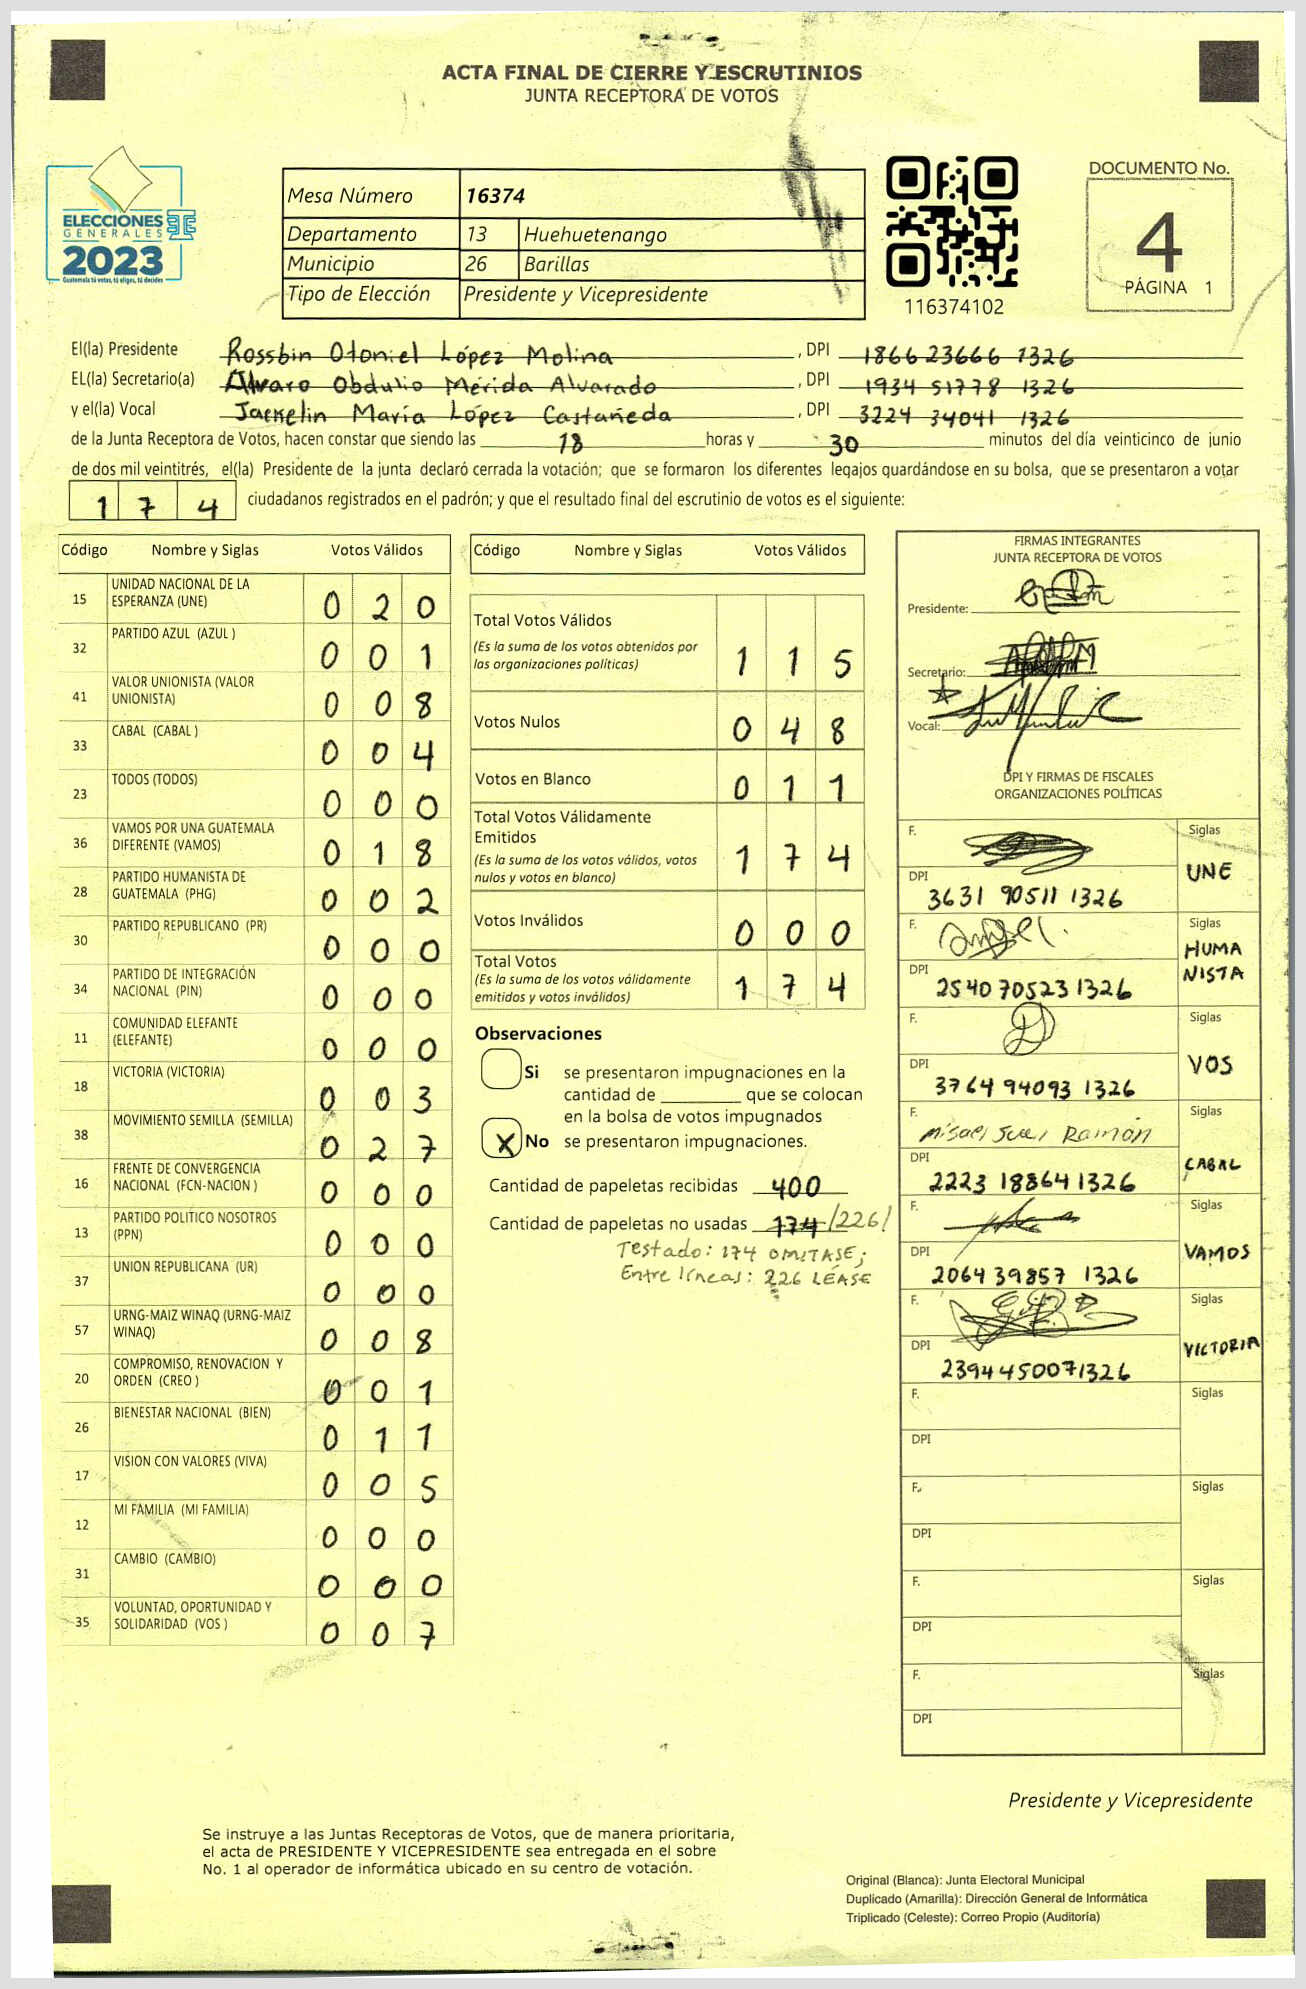 ACTA FINAL DE CIERRE Y ESCRUTINIOS
JUNTA RECEPTORA DE VOTOS
ELECCIONES
GENERALES
2023
Guatemala tú votas, tú eliges, tú decides
Mesa Número 16374
Departamento 13 Huehuetenango
Municipio 26 Barillas
Tipo de Elección Presidente y Vicepresidente
116374102
DOCUMENTO No.
4
PÁGINA 1
El(la) Presidente Rossbin Otoniel López Molina, DPI 1866 23666 1326
EL(la) Secretario(a) Alvaro Obdulio Mérida Alvarado, DPI 1934 51778 1326
y el(la) Vocal Jackelin María López Castañeda, DPI 3224 34041 1326
de la Junta Receptora de Votos, hacen constar que siendo las 18 horas y 30 minutos del día veinticinco de junio
de dos mil veintitrés, el(la) Presidente de la junta declaró cerrada la votación; que se formaron los diferentes legajos guardándose en su bolsa, que se presentaron a votar
174 ciudadanos registrados en el padrón; y que el resultado final del escrutinio de votos es el siguiente:
Código Nombre y Siglas Votos Válidos
15 UNIDAD NACIONAL DE LA ESPERANZA (UNE) 020
32 PARTIDO AZUL (AZUL ) 001
41 VALOR UNIONISTA (VALOR UNIONISTA) 008
33 CABAL (CABAL ) 004
23 TODOS (TODOS) 000
36 VAMOS POR UNA GUATEMALA DIFERENTE (VAMOS) 018
28 PARTIDO HUMANISTA DE GUATEMALA (PHG) 002
30 PARTIDO REPUBLICANO (PR) 000
34 PARTIDO DE INTEGRACIÓN NACIONAL (PIN) 000
11 COMUNIDAD ELEFANTE (ELEFANTE) 000
18 VICTORIA (VICTORIA) 003
38 MOVIMIENTO SEMILLA (SEMILLA) 027
16 FRENTE DE CONVERGENCIA NACIONAL (FCN-NACION ) 000
13 PARTIDO POLITICO NOSOTROS (PPN) 000
37 UNION REPUBLICANA (UR) 000
57 URNG-MAIZ WINAQ (URNG-MAIZ WINAQ) 008
20 COMPROMISO, RENOVACION Y ORDEN (CREO ) 001
26 BIENESTAR NACIONAL (BIEN) 011
17 VISION CON VALORES (VIVA) 005
12 MI FAMILIA (MI FAMILIA) 000
31 CAMBIO (CAMBIO) 000
35 VOLUNTAD, OPORTUNIDAD Y SOLIDARIDAD (VOS ) 007
Código Nombre y Siglas Votos Válidos
Total Votos Válidos 115
(Es la suma de los votos obtenidos por
las organizaciones políticas)
Votos Nulos 048
Votos en Blanco 011
Total Votos Válidamente Emitidos 174
(Es la suma de los votos válidos, votos
nulos y votos en blanco)
Votos Inválidos 000
Total Votos 174
(Es la suma de los votos válidamente
emitidos y votos inválidos)
Observaciones
Si se presentaron impugnaciones en la
cantidad de ________ que se colocan
en la bolsa de votos impugnados
X No se presentaron impugnaciones.
Cantidad de papeletas recibidas 400
Cantidad de papeletas no usadas 174 /226/
Testado: 174 OMITASE;
Entre líneas: 226 LÉASE
FIRMAS INTEGRANTES
JUNTA RECEPTORA DE VOTOS
Presidente:
Secretario:
Vocal:
DPI Y FIRMAS DE FISCALES
ORGANIZACIONES POLÍTICAS
F. Siglas UNE
DPI 3631 90511 1326
F. Siglas HUMA NISTA
DPI 2540 70523 1326
F. Siglas VOS
DPI 3764 94093 1326
F. Ramón Siglas CABAL
DPI 2223 18864 1326
F. Siglas VAMOS
DPI 2064 39857 1326
F. Siglas VICTORIA
DPI 2394450071326
F. Siglas
DPI
F. Siglas
DPI
F. Siglas
DPI
F. Siglas
DPI
Presidente y Vicepresidente
Se instruye a las Juntas Receptoras de Votos, que de manera prioritaria,
el acta de PRESIDENTE Y VICEPRESIDENTE sea entregada en el sobre
No. 1 al operador de informática ubicado en su centro de votación.
Original (Blanca): Junta Electoral Municipal
Duplicado (Amarilla): Dirección General de Informática
Triplicado (Celeste): Correo Propio (Auditoría)